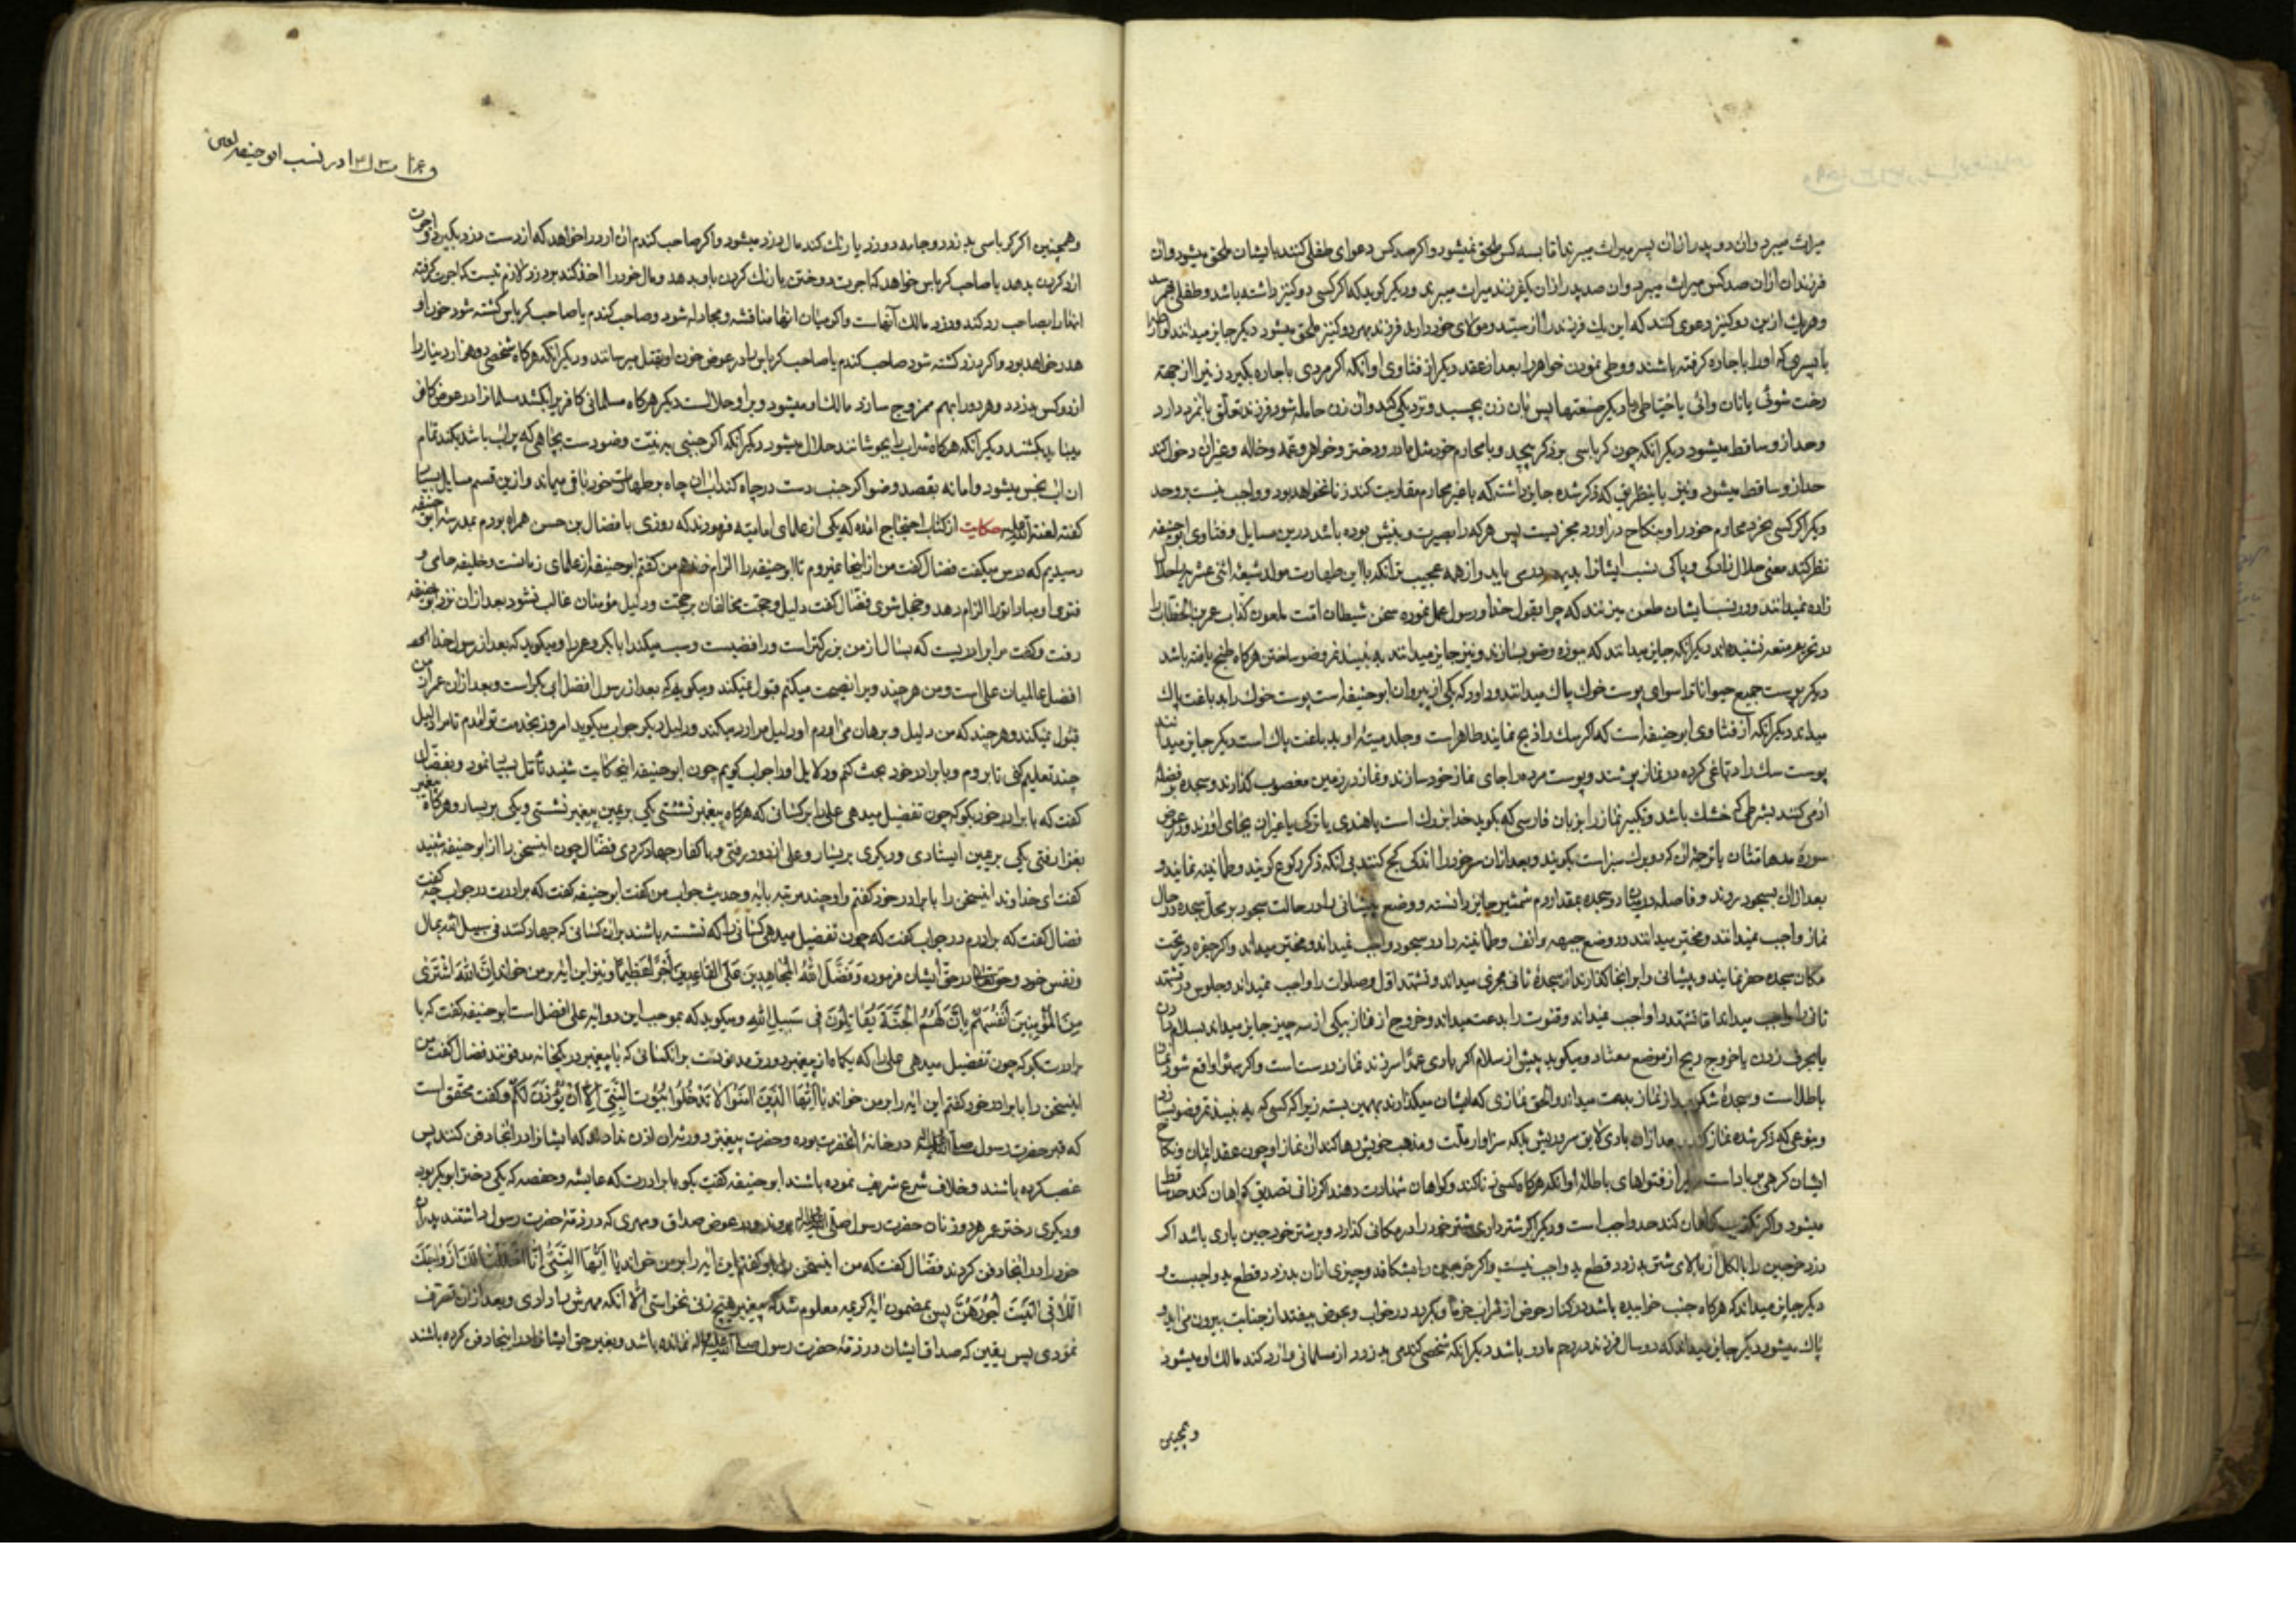 میراث میبرد وان دو پدر ازان پسر میراث میبرند اما بسه کس ملحق نمیشود واکر صد کس دعوای طفلی کنند بایشان ملحق میشود وان
فرزندان ازان صد کس میراث میبرد وان صد پدر ازان یکفرزند میراث میبرند ودیکر کوید که اکر کسی دو کنیز داشته باشد و طفلی بهم رسد
وهریك ازین دو کنیز دعوی کنند که این یك فرزند را از سید و مولای خود دارند فرزند بهر دو کنیز ملحق میشود دیکر جایز میدانند
با پسری که اورا باجاره کرفته باشند ووطی نمودن خواهر را بعد از عقد دیکر از فتاوی او انکه اکر مردی باجاره بکیرد زنیرا از جهته
رخت شوئی یا نان وائی یا خیاطی یا دیکر صنعتها پس بان زن بچسبد ونزدیکی کند وان زن حامله شود فرزند تعلق بانمرد دارد
وحد ازو ساقط میشود دیکر انکه چون کرباسی بر ذکر پیچد و با محارم خود مثل مادر ودختر وخواهر وعمه وخاله وغیران دخول کند
حد ازو ساقط میشود ونیز باینطریق که ذکر شده جایز داشته که با غیر محارم مقاربت کند زنا نخواهد بود وواجب نیست برو حد
دیکر اکر کسی بخرد محارم خود را وبنکاح دراورد مجزیست پس هرکه را بصیرت وبینش بوده باشد درین مسایل وفتاوی ابو حنیفه
نظر کند معنی حلال زادکی و پاکی نسب ایشانرا بدیهه در می یابد واز همه عجیب تر انکه با این طهارت مولد شیعهٔ اثنی عشریه را حلال
زاده نمیدانند ودر نسب ایشان طعن میزنند که چرا بقول خدا ورسول عمل نموده سخن شیطان امت ملعون کذاب عمر بن الخطاب را
در تحریم متعه نشنیده اند دیکر انکه جایز میدانند که بموزه وضو بسازند ونیز جایز میدانند به نبیذ تمر وضو ساختن هرکاه طبخ یافته باشد
دیکر پوست جمیع حیوانات را سوای پوست خوك پاك میدانند وداود که یکی از پیروان ابو حنیفه است پوست خوك را بدباغت پاك
میداند دیکر انکه از فتاوی ابو حنیفه است که اکر سك را ذبح نمایند طاهر است وجلد میتهٔ او بدباغت پاك است دیکر جایز میدانند
پوست سك را دباغی کرده در نماز پوشند وپوست مرده را جای نماز خود سازند ونماز در زمین مغصوب کذارند وسجده بر فضلهٔ
ادمی کنند بشرطی که خشك باشد وتکبیر نماز را بزبان فارسی که بکوید خدا بزرك است یا هندی یا ترکی یا غیران بجای اورند ودر عوض
سوره مدهامتان یا ترجمهٔ ان که دو برك سبز است بکویند وبعد ازان سر خود را اندکی کج کنند بی انکه ذکر رکوع کویند وطمانینه نمایند و
بعد ازان بسجود روند وفاصله در میان دو سجده بمقدار دم شمشیر جایز دانسته ووضع پیشانی را در حالت سجود بر محل سجده در حال
نماز واجب نمیدانند ومخیر میدانند در وضع جبهه وانف وطمانینه را در سجود واجب نمیداند ومخیر میداند واکر حفره در تحت
مکان سجده حفر نمایند وپیشانی را برانجا کذارند از سجدهٔ ثانی مجزی میداند وتشهد اول وصلوات را واجب نمیداند وجلوس در تشهد
ثانی را واجب میداند اما تشهد را واجب نمیداند وقنوت را بدعت میداند وخروج از نماز بیکی از سه چیز جایز میداند بسلام دادن
یا بحرف زدن یا خروج ریح از موضع معتاد ومیکوید پیش از سلام اکر بادی عمدا سر زند نماز درست است واکر بسهو واقع شود نماز
باطل است وسجدهٔ شکر بعد از نماز بدعت میداند والحق نمازی که ایشان میکذارند بهمین بسته زیرا که کسی که به نبیذ تمر وضو بسازد
وبنوعی که ذکر شده نماز کند بعد ازان بادی لایق سر وریش بلکه سزاوار ملت ومذهب خویش رها کند ان نماز او چون عقد ایمان ونکاح
ایشان کرهی بر باد است دیکر از فتواهای باطلهٔ او انکه هرکاه کسی زنا کند وکواهان شهادت دهند اکر زانی تصدیق کواهان کند حد ساقط
میشود واکر تکذیب کواهان کند حد واجب است ودیکر اکر شتر داری شتر خود را در مکانی کذارد وبر شتر خورجین باری باشد اکر
دزد خورجین را بالکل از بالای شتر بدزدد قطع ید واجب نیست واکر خورجین را بشکافد وچیزی ازان بدزدد قطع ید واجبست و
دیکر جایز میداند که هرکاه جنب خوابیده باشد در کنار حوض از شراب خرما وبکردد در خواب وبحوض بیفتد از جنابت بیرون می اید و
پاك میشود دیکر جایز میداند که دو سال فرزند در رحم مادر باشد دیکر انکه شخصی کندمی بدزدد از مسلمانی وارد کند مالك او میشود
وهمچنین
در نسب ابو حنیفه لعین
وهمچنین اکر کرباسی بدزدد وجامه دوزد یا رنك کند مال دزد میشود واکر صاحب کندم ان ارد را خواهد که از دست دزد بکیرد واجرت
ارد کردن بدهد یا صاحب کرباس خواهد که اجرت دوختن یا رنك کردن باو بدهد ومال خود را اخذ کند بر دزد لازم نیست که اجرت کرفته
انها را بصاحب رد کند ودزد مالك انهاست واکر میان انها مناقشه ومجادله شود وصاحب کندم یا صاحب کرباس کشته شود خون او
هدر خواهد بود واکر دزد کشته شود صاحب کندم یا صاحب کرباس را در عوض خون او بقتل میرسانند ودیکر انکه هرکاه شخصی دو هزار دینار را
از دو کس بدزدد وهر دو را بهم ممزوج سازد مالك او میشود وبر او حلالست دیکر هرکاه مسلمانی کافریرا بکشد مسلمانرا در عوض کافر
میباید بکشند دیکر انکه هرکاه شراب را بجوشانند حلال میشود دیکر انکه اکر جنبی به نیت وضو دست بچاهی که پر اب باشد بکند تمام
ان اب نجس میشود واما نه بقصد وضو اکر جنب دست در چاه کند اب ان چاه بر طهارت خود باقی میماند وازین قسم مسایل بسیار
کفته لعنة الله علیه حکایت از کتاب احتجاج امده که یکی از علمای امامیه فرمودند که روزی با فضال بن حسن همراه بودم بمدرسهٔ ابو حنیفه
رسیدیم که درس میکفت فضال کفت من از اینجا نمیروم تا ابو حنیفه را الزام ندهم من کفتم ابو حنیفه از علمای زمانست وخلیفه حامی و
فتوی او مبادا تورا الزام دهد وخجل شوی فضال کفت دلیل وحجت مخالفان بر حجت ودلیل مؤمنان غالب نشود بعد ازان نزد ابو حنیفه
رفت وکفت مرا برادریست که بسال از من بزرکتر است ورافضیست وسب میکند ابابکر وعمر را ومیکوید که بعد از رسول خدا
افضل عالمیان علی است ومن هرچند ویرا نصیحت میکنم قبول نمیکند ومیکویم که بعد از رسول افضل ابی بکر است وبعد ازان عمر از من
قبول نمیکند وهرچند که من دلیل وبرهان می اورم او دلیل مرا رد میکند ودلیل دیکر جواب میکوید امروز بخدمت تو امدم تا مرا دلیل
چند تعلیم کنی تا بروم وبا برادر خود بحث کنم ودلایل اورا جواب کویم چون ابو حنیفه اینحکایت شنید تامل بسیار نمود وبفضال
کفت که با برادر خود بکو که چون تفضیل میدهی علی را بر کسانی که هرکاه پیغمبر نشستی یکی بر یمین پیغمبر نشستی ویکی بر یسار وهرکاه پیغمبر
بغزا رفتی یکی بر یمین ایستادی ودیکری بر یسار وعلی از دور رفتی وبا کفار جهاد کردی فضال چون اینسخن را از ابو حنیفه شنید
کفت ای خداوند اینسخن را با برادر خود کفتم واو چند مرتبه بایه وحدیث جواب من کفت ابو حنیفه کفت که برادرت در جواب چه کفت
فضال کفت که برادرم در جواب کفت که چون تفضیل میدهی کسانی را که نشسته باشند بران کسانی که جهاد کنند فی سبیل الله بمال
ونفس خود وحق تعالی در حق ایشان فرموده وَفَضَّلَ اللهُ الْمُجَاهِدِينَ عَلَى الْقَاعِدِينَ أَجْرًا عَظِيمًا ونیز این ایه بر من خواند اِنَّ اللهَ اشْتَرَى
مِنَ الْمُؤْمِنِينَ أَنْفُسَهُمْ بِأَنَّ لَهُمُ الْجَنَّةَ يُقَاتِلُونَ فِي سَبِيلِ اللهِ ومیکوید که بموجب این دو ایه علی افضل است ابو حنیفه کفت که با
برادرت بکو که چون تفضیل میدهی علی را که بکلمان پیغمبر دور تر مدفونست بر انکسانی که با پیغمبر در یکخانه مدفونند فضال کفت من
اینسخن را با برادر خود کفتم این ایه را بر من خواند يَا أَيُّهَا الَّذِينَ آمَنُوا لَا تَدْخُلُوا بُيُوتَ النَّبِيِّ إِلَّا أَنْ يُؤْذَنَ لَكُمْ وکفت محقق است
که قبر حضرت رسول در خانهٔ انحضرت بوده وحضرت پیغمبر ایشان اذن نداده که ایشانرا در انجا دفن کنند پس
غصب کرده باشند وخلاف شرع شریف نموده باشند ابو حنیفه کفت بکو با برادرت که عایشه وحفصه که یکی دختر ابو بکر بود
ودیکری دختر عمر هر دو زنان حضرت رسول بودند ودر عوض صداق ومهری که در ذمهٔ حضرت رسول داشتند پدران
خود را در انجا دفن کردند فضال کفت که من اینسخن را باو کفتم این ایه را بر من خواند يَا أَيُّهَا النَّبِيُّ إِنَّا أَحْلَلْنَا لَكَ أَزْوَاجَكَ
اللَّاتِي آتَيْتَ أُجُورَهُنَّ پس بمضمون ایهٔ کریمه معلوم شد که پیغمبر هیچ زنی نخواستی الا انکه مهرش را دادی وبعد ازان تصرف
نمودی پس بیقین که صداق ایشان در ذمهٔ حضرت رسول نمانده باشد وبغیر حق ایشانرا در اینجا دفن کرده باشند